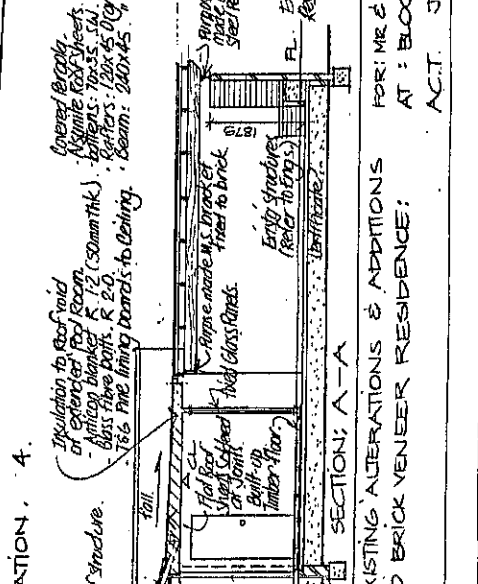 ATION. 4.
Structure.
fall.
Insulation to Roof void
of extended Pool Room.
- Anticon blanket R 1.2 (50mm thk).
- Glass fibre batts. R 2.0.
- T&G Pine lining boards to Ceiling.
Covered Pergola -
Roof Sheets.
battens: 70x35 S.W.
Rafters: 120x45 O
Beam: 240x45.
made
Steel
Flat Roof
Sheets
on Joists
Built-up
Timber Floor
Fixed Glass Panels.
Purpose made M.S. bracket
fixed to brick
1875
Exist'g Structures
(Refer to Eng's.)
Certificate)
FL.
SECTION: A-A
ISTING ALTERATIONS & ADDITIONS
BRICK VENEER RESIDENCE:
FOR: MR &
AT: BLOC
A.C.T.